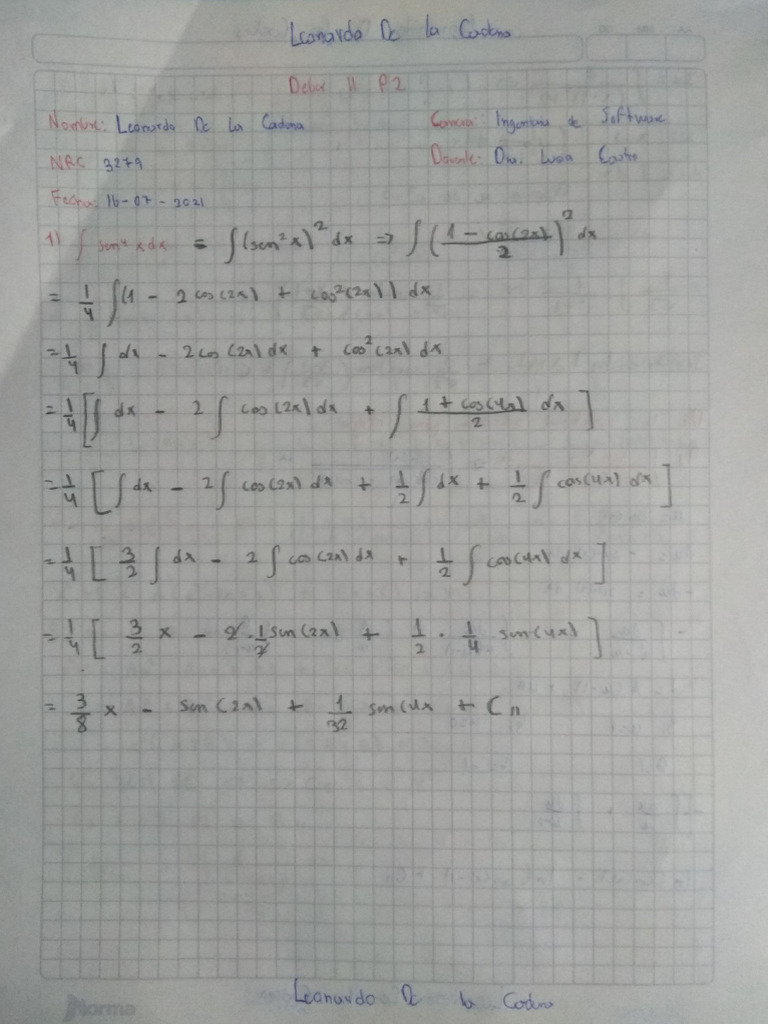 Leonardo De la Cadena
Deber 11 P2
Nombre: Leonardo De La Cadena Carrera: Ingenieria de Software
NRC 3279 Docente: Dra. Lucia Castro
Fecha: 16-07-2021
1) ∫ sen⁴x dx = ∫(sen²x)² dx => ∫((1 - cos(2x))/2)² dx
= 1/4 ∫(1 - 2cos(2x) + cos²(2x)) dx
= 1/4 ∫ dx - 2cos(2x) dx + cos²(2x) dx
= 1/4 [∫ dx - 2 ∫ cos(2x) dx + ∫ (1 + cos(4x))/2 dx ]
= 1/4 [ ∫ dx - 2∫ cos(2x) dx + 1/2 ∫ dx + 1/2 ∫ cos(4x) dx ]
= 1/4 [ 3/2 ∫ dx - 2 ∫ cos(2x) dx + 1/2 ∫ cos(4x) dx ]
= 1/4 [ 3/2 x - 2 · 1/2 sen(2x) + 1/2 · 1/4 sen(4x) ]
= 3/8 x - sen(2x) + 1/32 sen(4x + C //
Norma
Leonardo De la Cadena